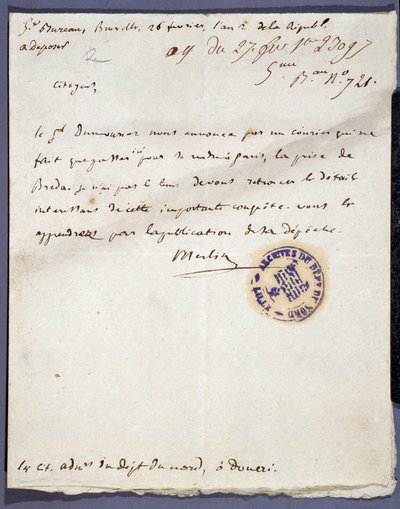 5e Bureau, Bruxelles, 26 fevrier, l'an 2 de la Républ.
a deposer
du 27 fev.
Bau No. 721.
Citoyens
le gal Dumourier nous annonce par un courier qui ne
fait que passer ici pour se rendre à paris, la prise de
Breda. je n'ai pas le tems de vous retracer le détail
interessant de cette importante conquête. vous le
apprendrez par la publication de sa dépêche.
Merlin
ARCHIVES DU DEPT DU NORD
LILLE
Les Ct. admrs du dépt du nord, à Douai.